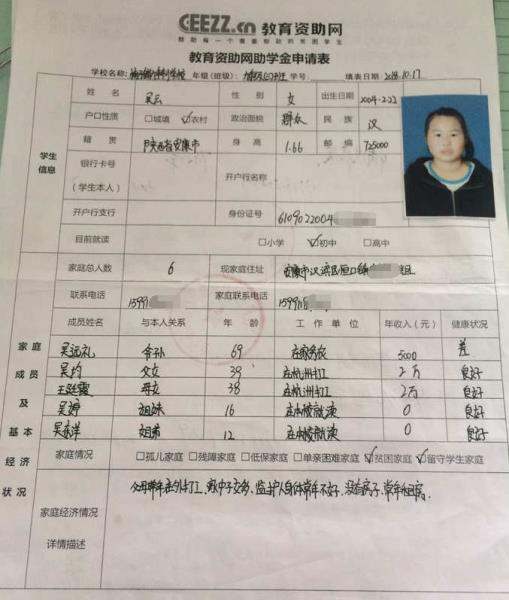 CEEZZ.cn 教育资助网
帮助每一个需要帮助的贫困学生
教育资助网助学金申请表
学校名称: 年级(班级): 学号: 填表日期: 2018.10.17
姓名 吴云 性别 女 出生日期 2004.2.22
户口性质 □城镇 ☑农村 政治面貌 群众 民族 汉
籍贯 陕西省安康市 身高 1.66 邮编 725000
学生信息
银行卡号(学生本人) 开户行名称
开户行支行 身份证号 6109022004
目前就读 □小学 ☑初中 □高中
家庭总人数 6 现家庭住址 安康市汉滨区恒口镇
联系电话 15991 家庭联系电话 159918
家庭成员及基本经济状况
成员姓名 与本人关系 年龄 工作单位 年收入(元) 健康状况
吴远礼 爷孙 69 在家务农 5000 差
吴均 父女 39 在杭州打工 2万 良好
王廷霞 母女 38 在杭州打工 2万 良好
吴婷 姐妹 16 在本校就读 0 良好
吴家洋 姐弟 12 在本校就读 0 良好
家庭情况 □孤儿家庭 □残障家庭 □低保家庭 □单亲困难家庭 ☑贫困家庭 ☑留守学生家庭
家庭经济情况详情描述
父母常年在外打工、家中子女多、监护人身体常年不好、没有房子、常年租房。